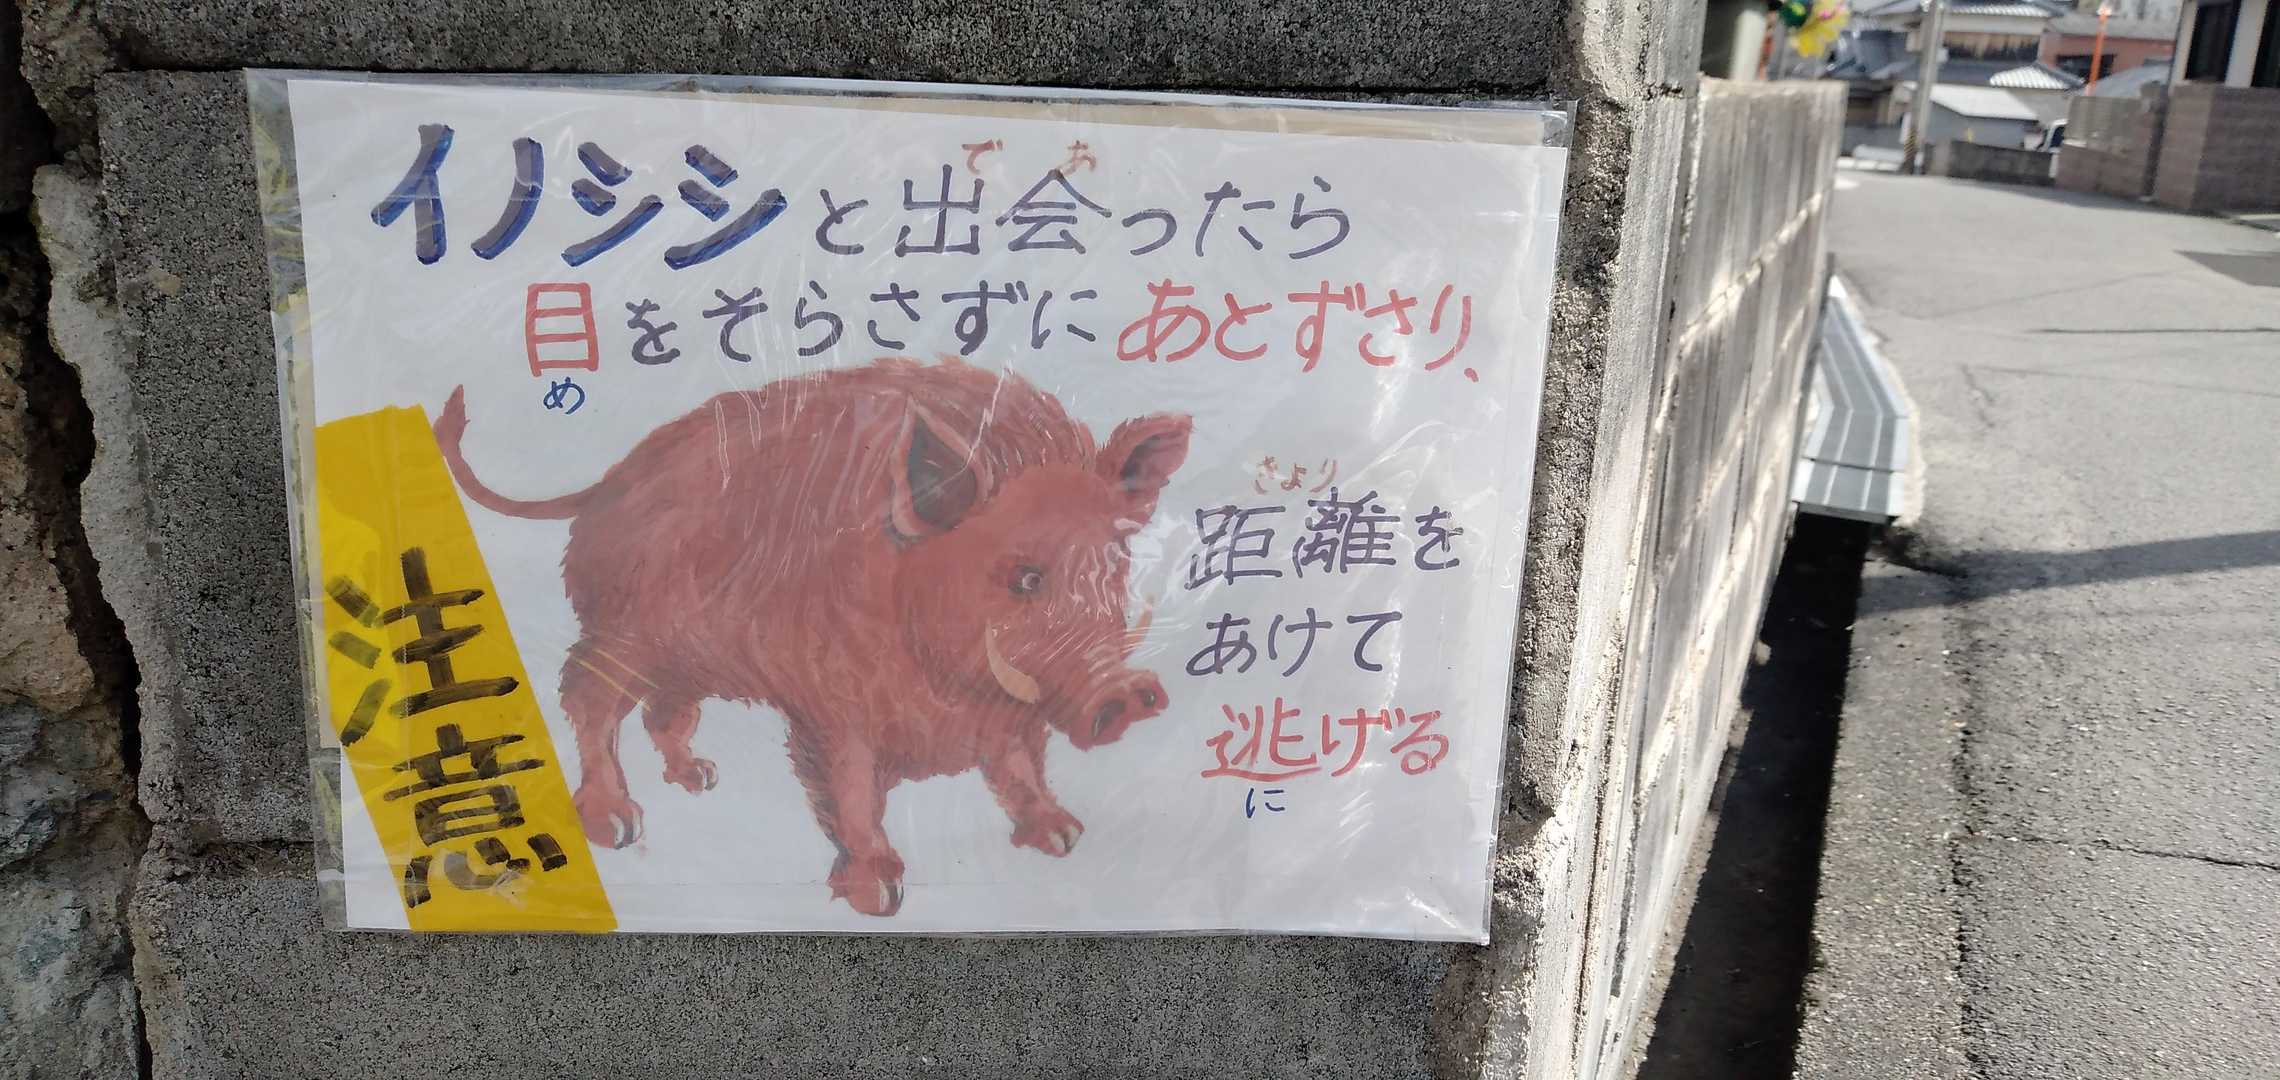 イノシシと出会ったら
であ
目をそらさずにあとずさり、
め
きょり
距離を
あけて
逃げる
に
注意